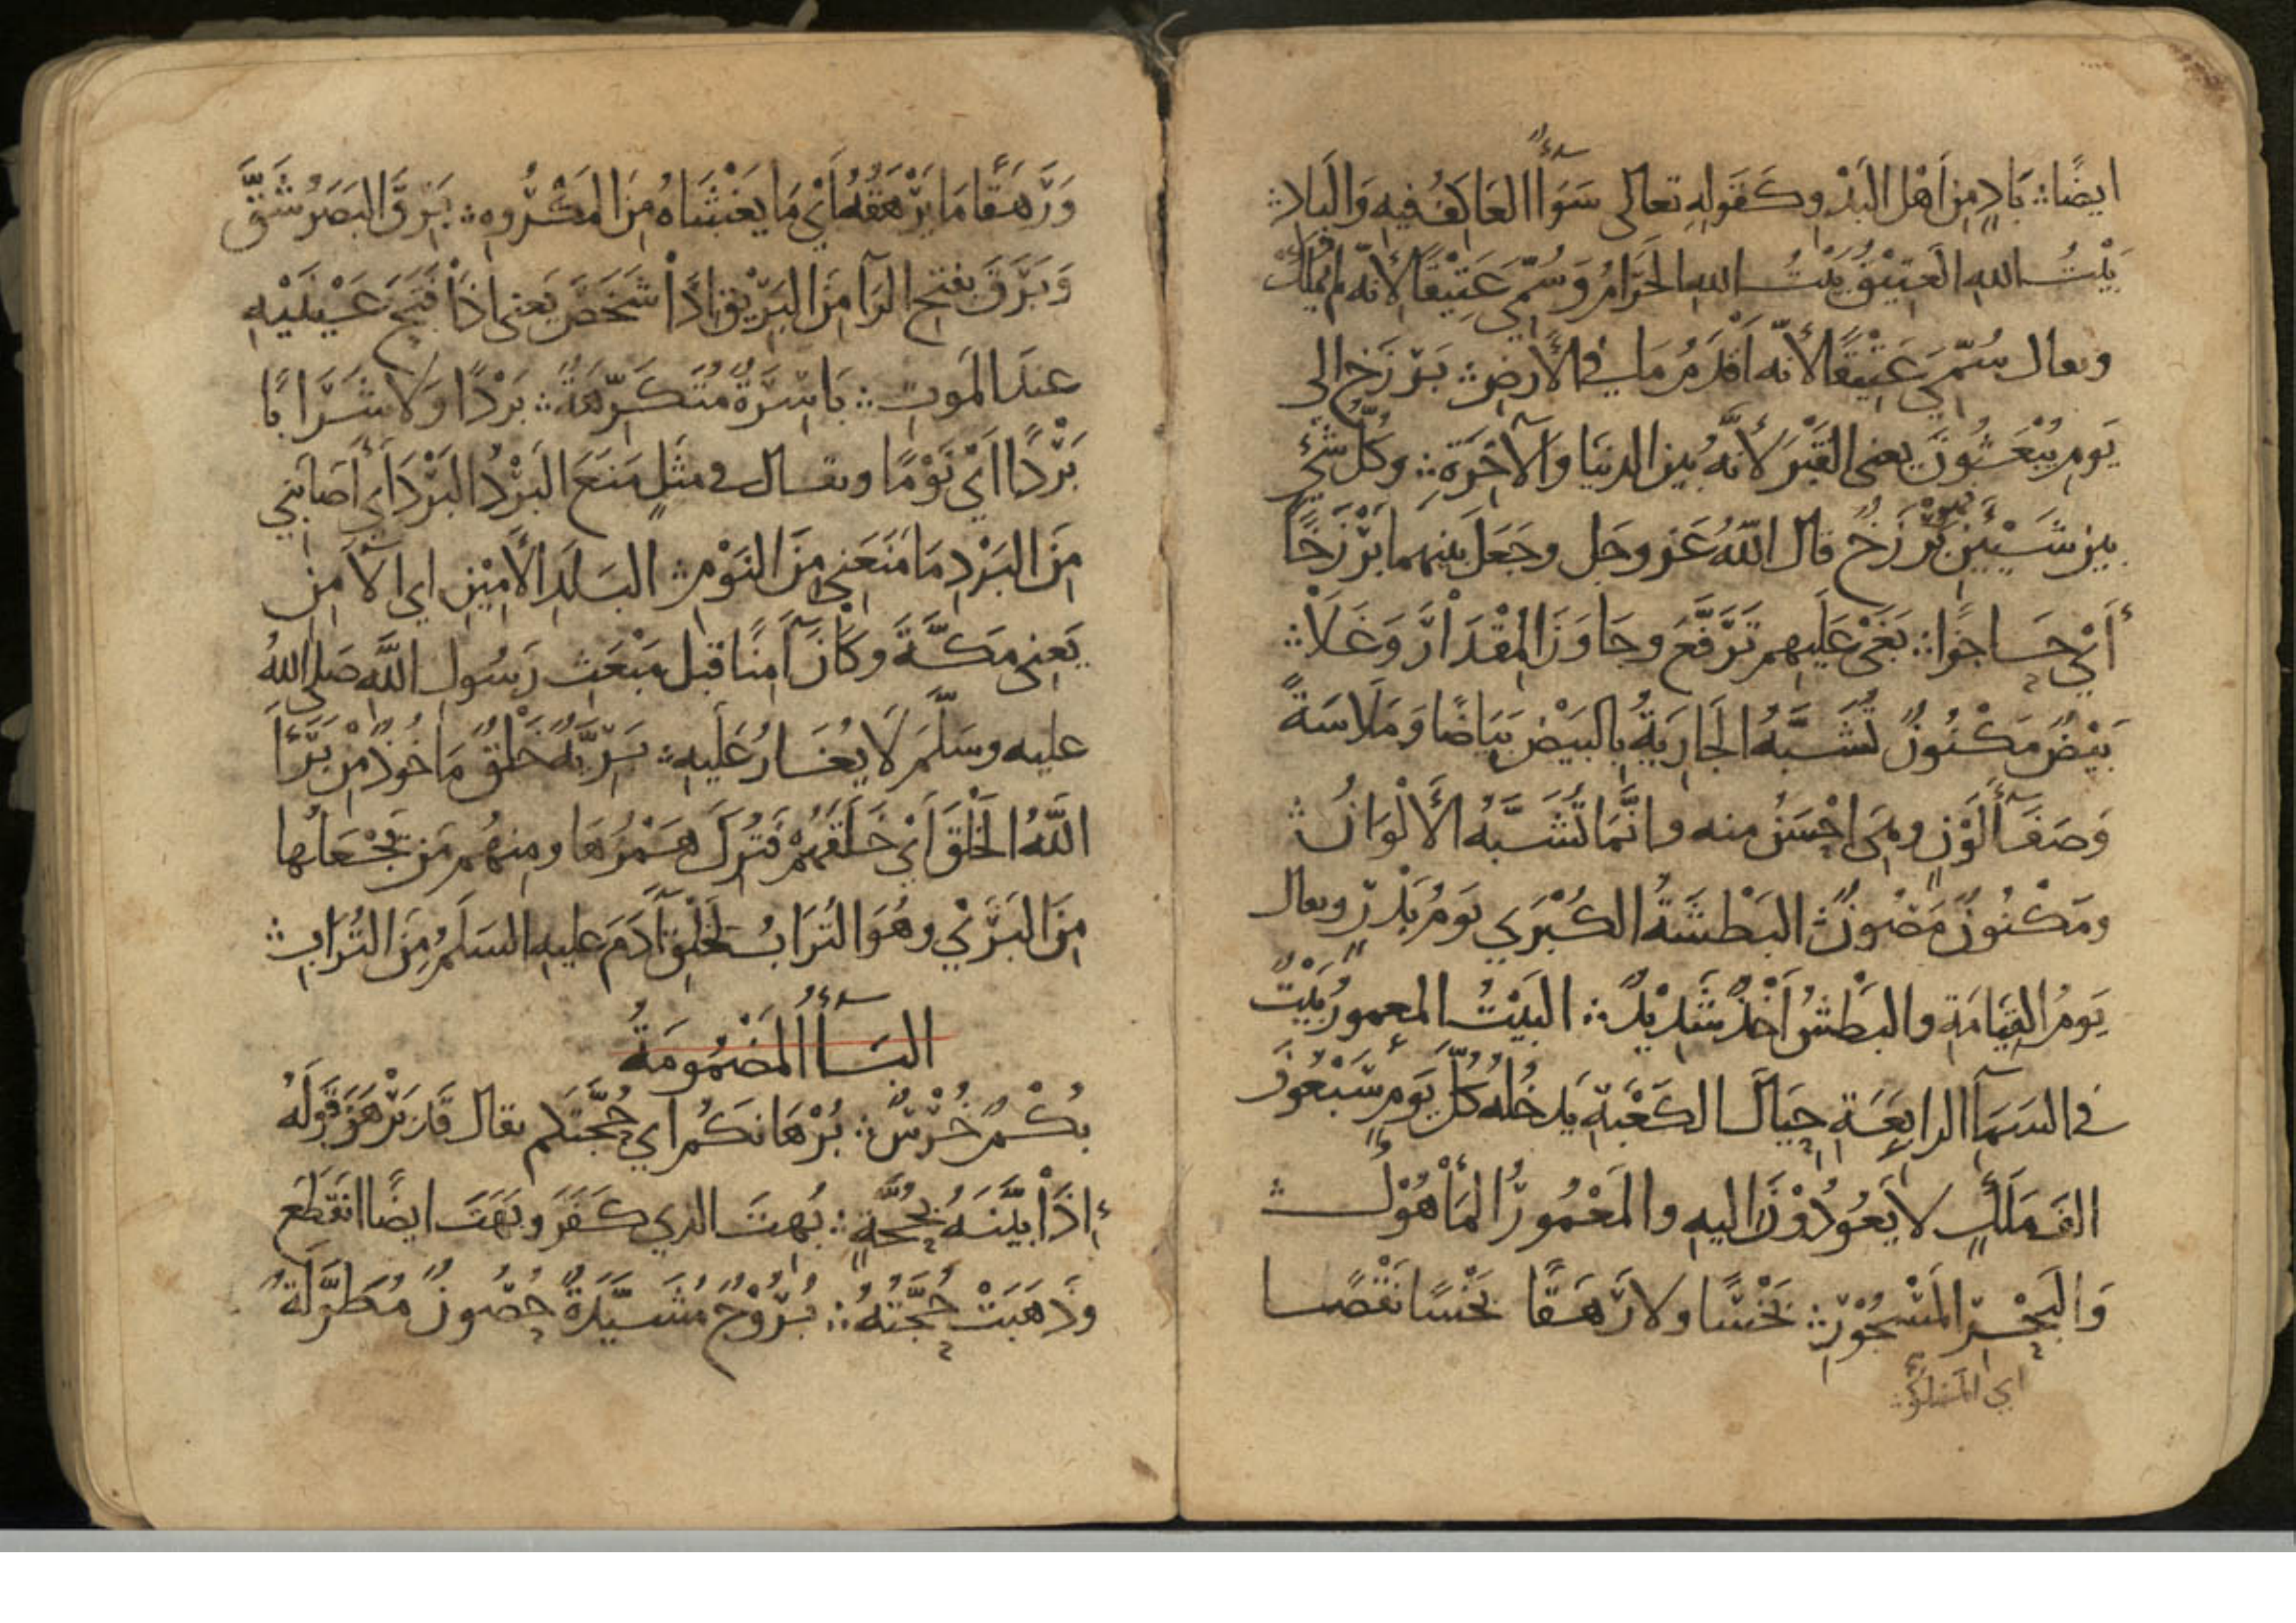 ايضًا ∴ بَادٍ مِن اَهْل البَدْوِ وكَقَولِهِ تعالى سَوَآءً العَاكِفُ فِيهِ وَالبَادِ ∴
بَيْتُ اللهِ العَتِيْقُ بَيْتُ اللهِ الحَرَامُ وَسُمِّيَ عَتِيْقًا لِأنّه لم يُمْلَكْ
ويقال سُمِّيَ عَتِيْقًا لأنّه اَقْدَمُ مَا في الأرضِ ∴ بَرْزَخ الى
يَومِ يُبْعَثُونَ يعني القَبْرَ لأنَّهُ بين الدنيَا وَالآخِرَةِ ∴ وكُلّ شَيْءٍ
بين شَيْئَينِ بَرْزَخٌ قال اللهُ عَز وجَل وجَعَلَ بينهما بَرْزَخًا
أَيْ حَاجِزًا ∴ بَغَىْ عَلَيهِم تَرَفَّعَ وجَاوَزَ المِقْدَارَ وَغَلَا ∴
بَيْضٌ مَكْنُونٌ تُشَبَّهُ الجَارِيَةُ بِالبَيْضِ بَيَاضًا وَمَلَاسَةً
وَصَفَآءَ لَوْنٍ وهِيَ احْسَنُ منه وانَّمَا تُشَبَّهُ الأَلْوَانُ ∴
ومَكْنُونٌ مَصُونٌ ∴ البَطْشَةُ الكُبْرَي يَومُ بَدْرٍ ويقال
يَومُ القِيَامَةِ والبَطْشُ اَخْذٌ شَدِيْدٌ ∴ البَيْتُ المعمورُ بَيْتٌ
في السَمَآءِ الرابِعَةِ حِيَالَ الكَعْبَةِ يَدخُلُهُ كُلَّ يَومٍ سَبْعُونَ
الفَ مَلَكٍ لا يَعُودُوْنَ اليهِ والمَعْمُورُ المَأْهُوْلُ ∴
وَالبَحْرِ المَسْجُوْرِ ∴ بَخْسًا ولا رَهَقًا بَخْسًا نَقْصًا
اي المملوّ ∴
وَرَهَقًا مَا يَرْهَقُهُ أَيْ مَا يَغْشَاهُ مِنَ المَكْرُوهِ ∴ بَرِقَ البَصَرُ شَقَّ
وَبَرَقَ بفتح الرَآ مِنَ البَرِيْقِ اذَا شَخَصَ يَعني اذَا فَتَحَ عَيْنَيْهِ
عندَ المَوتِ ∴ بَاسِرَةٌ مُتَكَرِّهَةٌ ∴ بَرْدًا وَلَا شَرَابًا
بَرْدًا اَيْ نَوْمًا ويقال في مثَلٍ مَنَعَ البَرْدُ البَرْدَ أَي أصَابَنِي
مِنَ البَرْدِ مَا مَنَعَنِي مِنَ النَوْمِ ∴ البَلَدِ الأَمِيْنِ اي الآمِنِ
يَعنِي مَكَّةَ وكَانَ آمِنًا قبل مَبْعَثِ رَسُولِ اللهِ صَلى اللهُ
عليه وسَلَّمَ لَا يُغَارُ عَلَيهِ ∴ بَرِيَّةٌ خَلْقٌ مَاخُوذٌ مِنْ بَرَأَ
اللهُ الخَلْقَ اَيْ خَلَقَهُمْ فتُرِكَ هَمْزُهَا ومِنهُم مَن يَجْعَلُها
مِنَ البَرَيْ وهُوَ التُرَابُ لِخَلْقِ آدَمَ عليهِ السَلَمُ مِنَ التُرَابِ ∴
البَآءُ المَضْمُومَةُ
بُكْمٌ خُرْسٌ ∴ بُرْهَانَكُم اي حُجَّتكم يقال قَد بَرْهَنَ قَوْلَهُ
إذَا بَيَّنَهُ بِحُجَّةٍ ∴ بُهِتَ الذي كَفَرَ وبَهَتَ ايضًا انقَطَعَ
وذَهَبَتْ حُجَّتُهُ ∴ بُرُوْجٌ مُشَيَّدَةٌ حُصُونٌ مُطَوَّلَةٌ